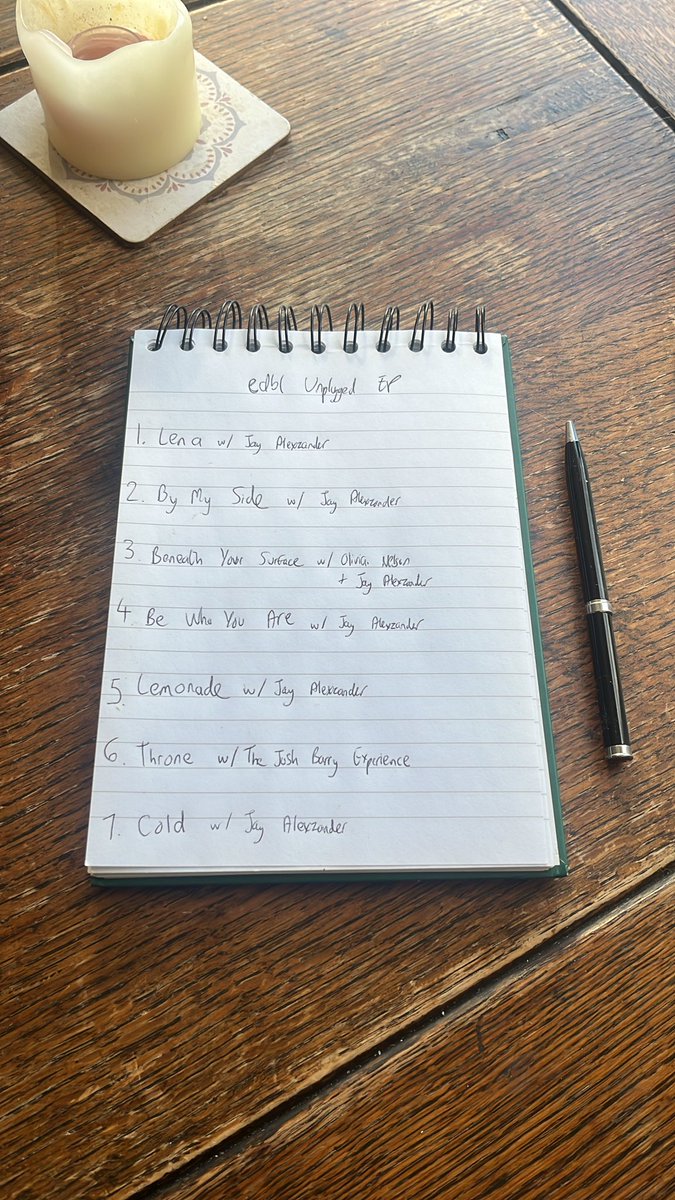 edbl Unplugged EP
1. Lena w/ Jay Alexzander
2. By My Side w/ Jay Alexzander
3. Beneath Your Surface w/ Olivia Nelson
+ Jay Alexzander
4 Be Who You Are w/ Jay Alexzander
5. Lemonade w/ Jay Alexzander
6. Throne w/ The Josh Barry Experience
7. Cold w/ Jay Alexzander